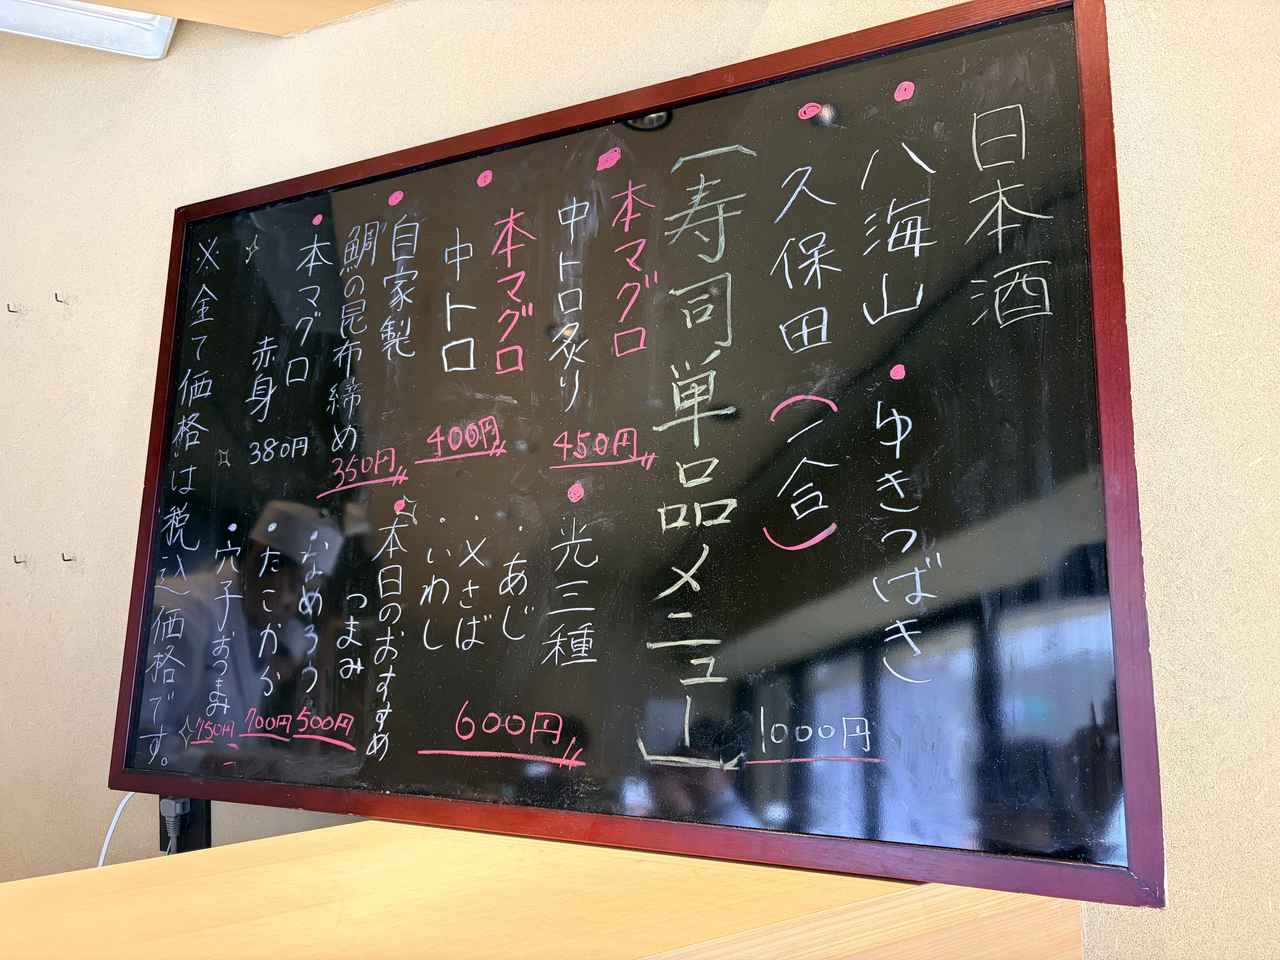 日本酒
八海山
ゆきつばき
久保田
(一合)
1000円
〔寿司単品メニュー〕
本マグロ
中トロ炙り
450円
本マグロ
中トロ
400円
自家製
鯛の昆布締め
350円
本マグロ
赤身
380円
光三種
・あじ
・〆さば
・いわし
600円
本日のおすすめ
つまみ
・なめろう
500円
・たこから
700円
・穴子おつまみ
750円
※全て価格は税込価格です。